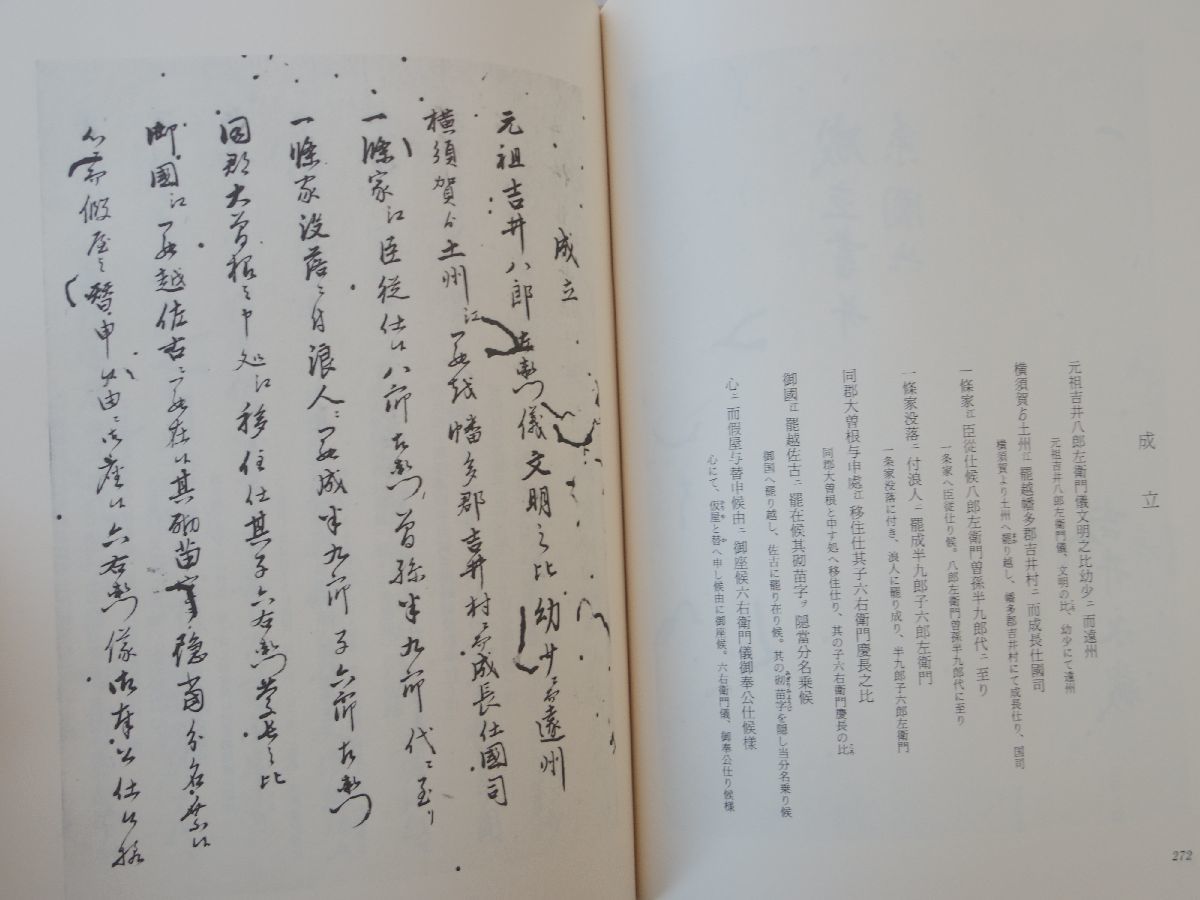 成立
元祖吉井八郎左衛門儀文明之比幼少ニ而遠州
元祖吉井八郎左衛門儀、文明の比、幼少にて遠州
横須賀ゟ土州江罷越幡多郡吉井村ニ而成長仕國司
横須賀より土州へ罷り越し、幡多郡吉井村にて成長仕り、国司
一條家江臣従仕候八郎左衛門曽孫半九郎代ニ至り
一条家へ臣従仕り候。八郎左衛門曽孫半九郎代に至り
一條家没落ニ付浪人ニ罷成半九郎子六郎左衛門
一条家没落に付き、浪人に罷り成り、半九郎子六郎左衛門
同郡大曽根与申處江移住仕其子六右衛門慶長之比
同郡大曽根と申す処へ移住仕り、其の子六右衛門慶長の比
御國江罷越佐古ニ罷在候其砌苗字ヲ隠當分名乗候
御国へ罷り越し、佐古に罷り在り候。其の砌苗字を隠し当分名乗り候
心ニ而假屋与替申候由ニ御座候六右衛門儀御奉公仕候様
心にて、仮屋と替へ申し候由に御座候。六右衛門儀、御奉公仕り候様
272
成立
元祖吉井八郎左衛門儀文明之比幼少ニ而遠州
横須賀ゟ土州江罷越幡多郡吉井村ニ而成長仕國司
一條家江臣従仕候八郎左衛門曽孫半九郎代ニ至り
一條家没落ニ付浪人ニ罷成半九郎子六郎左衛門
同郡大曽根与申處江移住仕其子六右衛門慶長之比
御國江罷越佐古ニ罷在候其砌苗字ヲ隠當分名乗候
心ニ而假屋与替申候由ニ御座候六右衛門儀御奉公仕候様